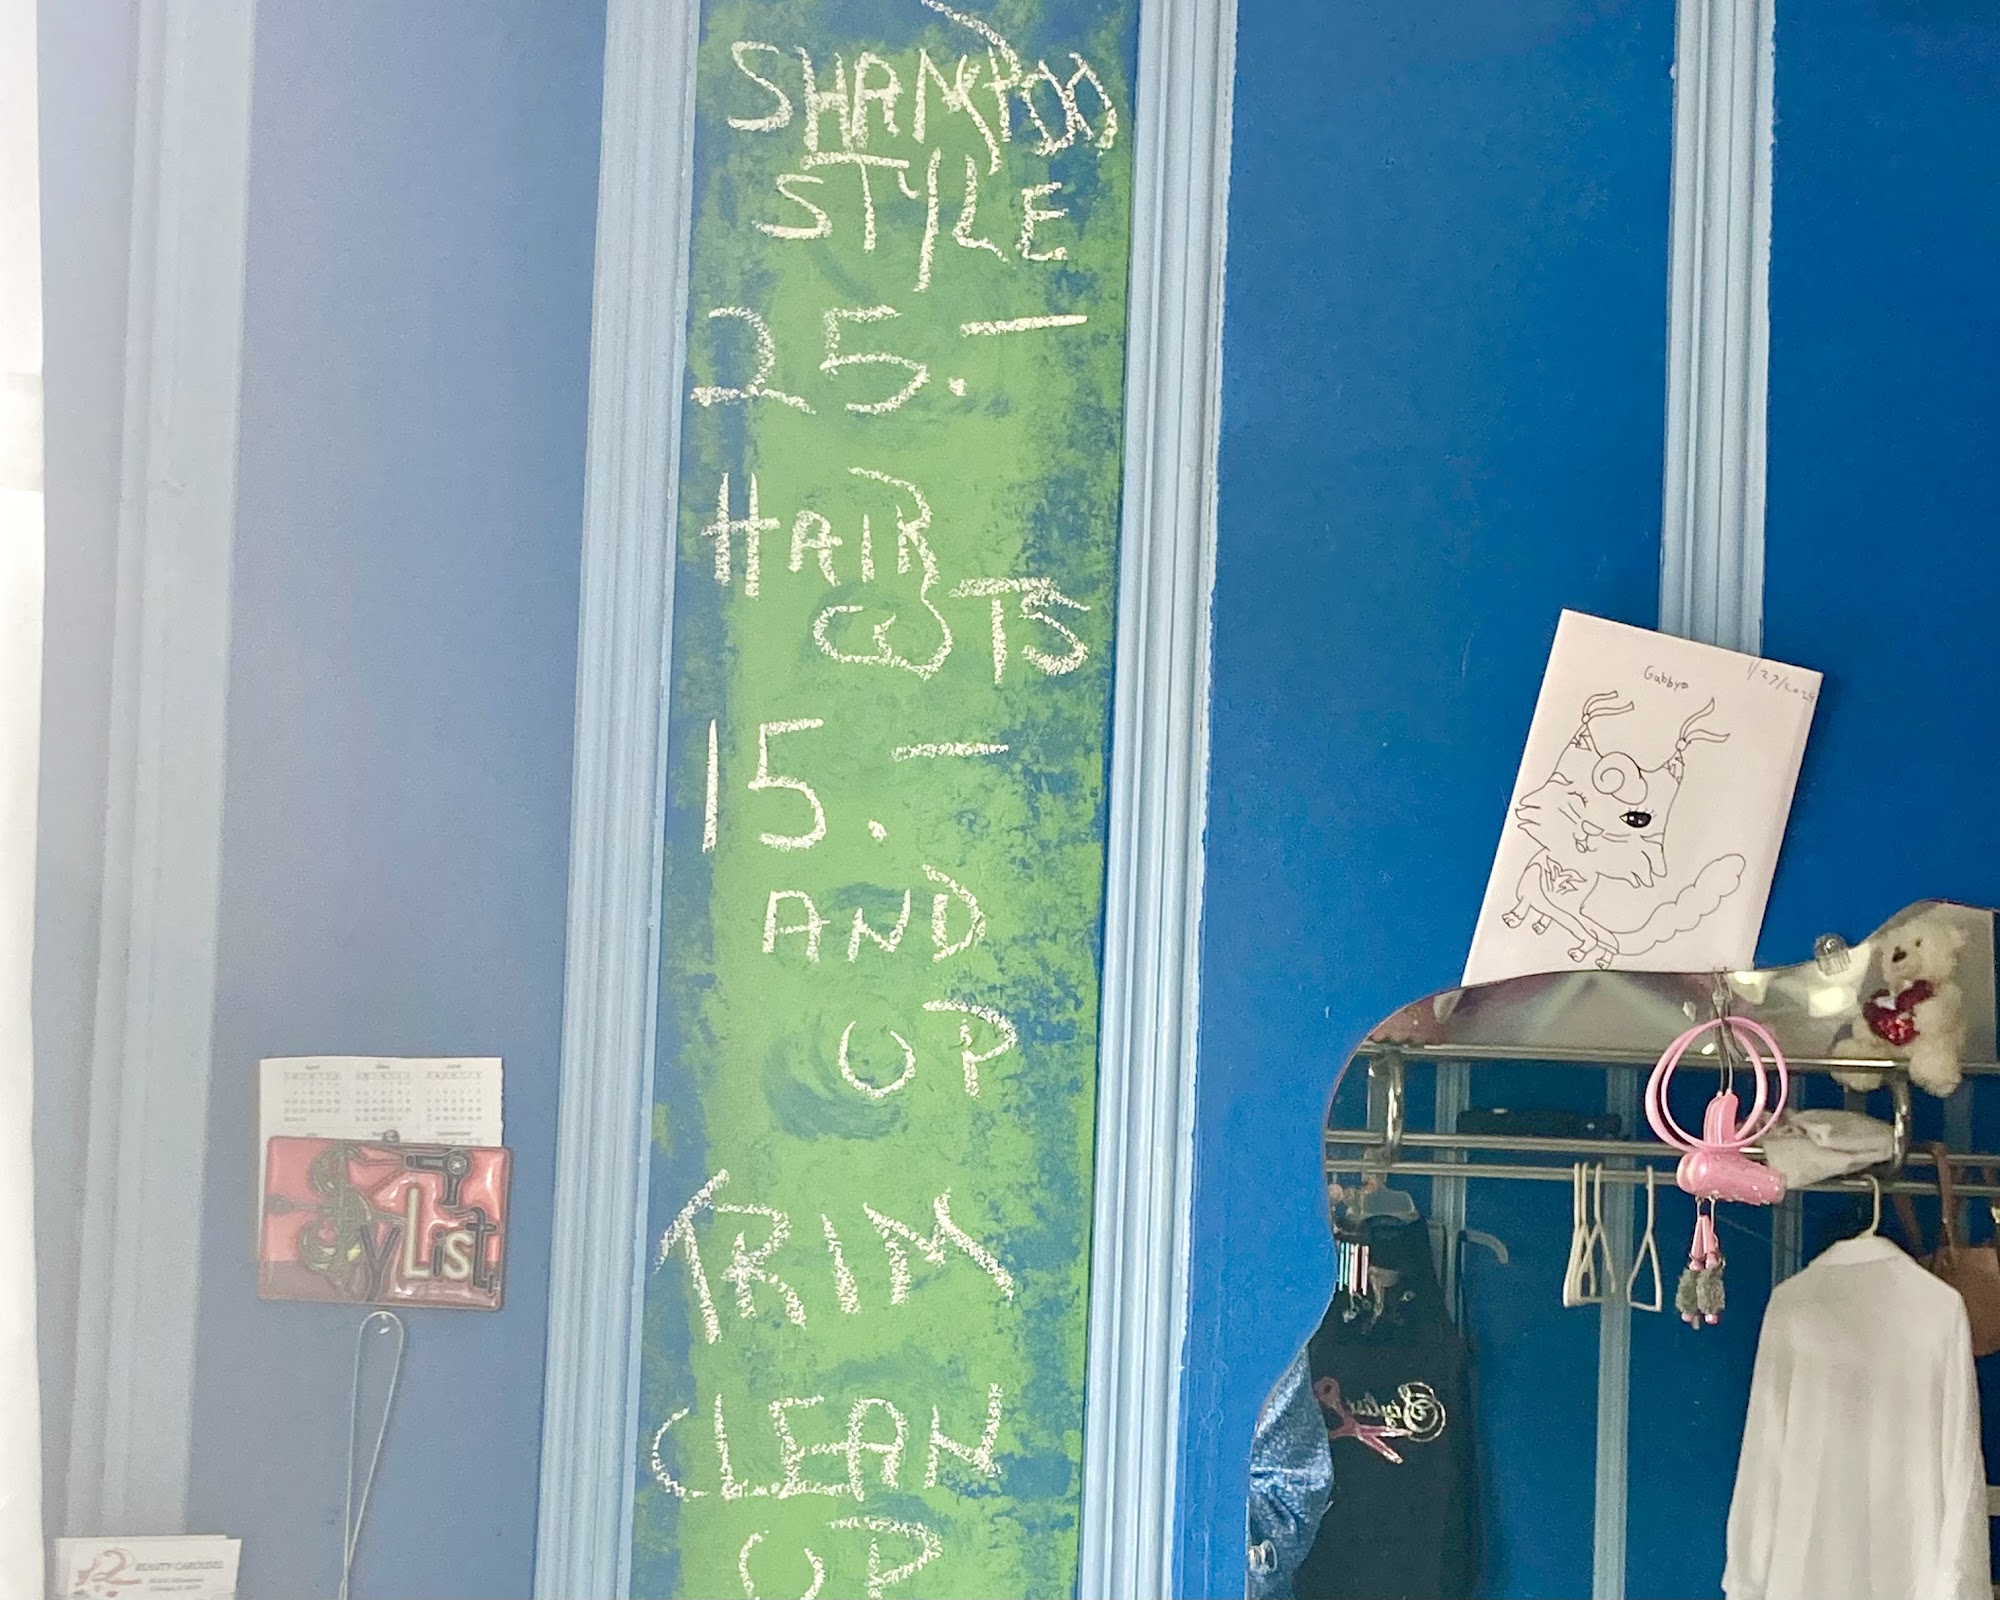 SHAMPOO
STYLE
25.—
HAIR
CUTS
15.—
AND
UP
TRIM
CLEAN
UP
Gabby
1/27/202
April May June
StyList
BEAUTY CAROUSEL